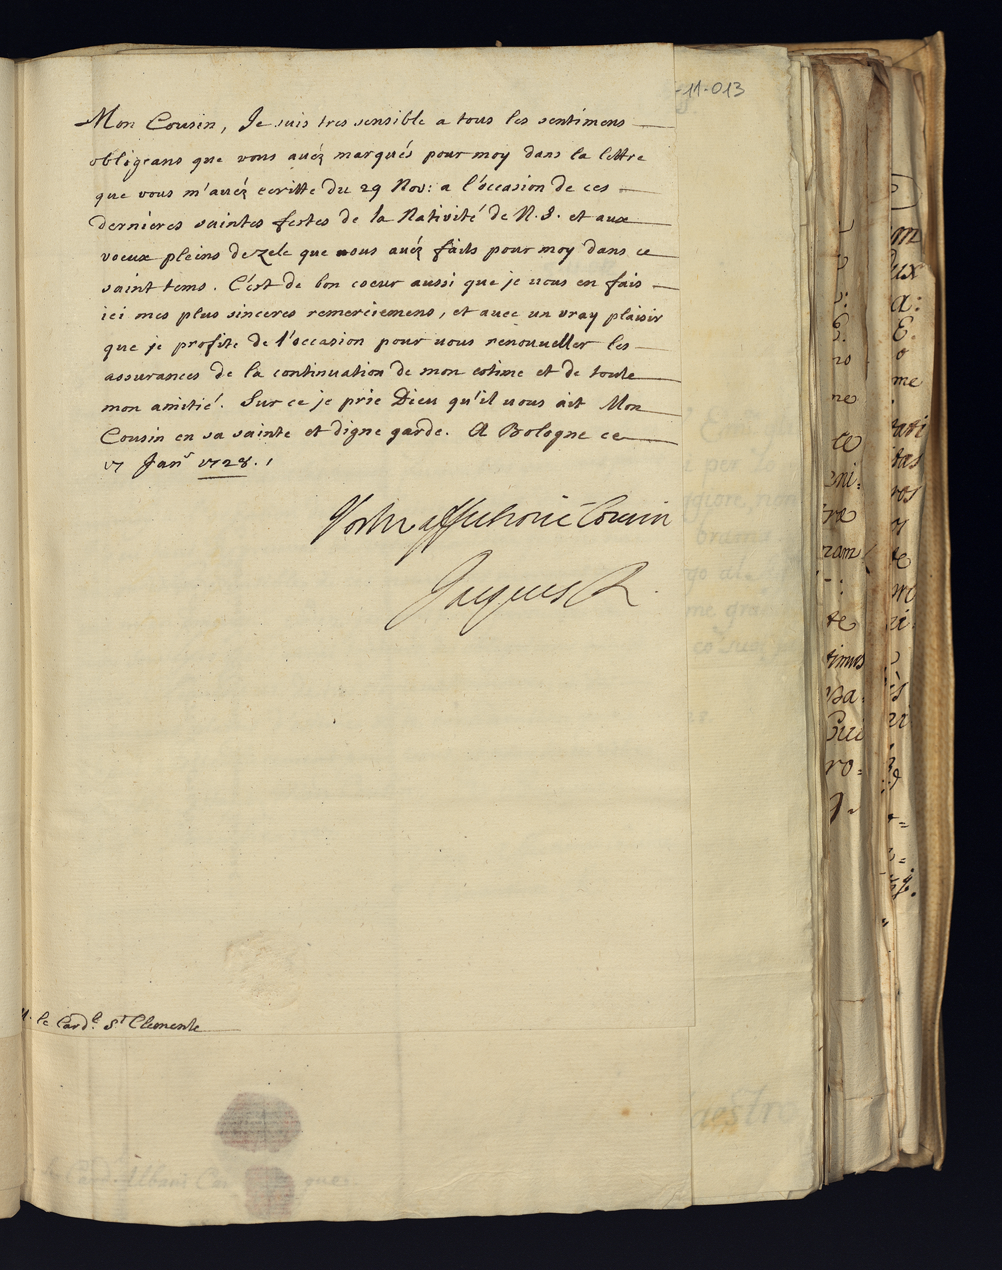 -11-013
Mon Cousin, Je suis tres sensible a tous les sentimens
obligeans que vous auéz marqués pour moy dans la lettre
que vous m'auéz ecritte du 29 Nov: a l'occasion de ces
dernières saintes festes de la Nativité de N. S. et aux
voeux pleins de zele que vous auéz faits pour moy dans ce
saint tems. C'est de bon coeur aussi que je vous en fais
ici mes plus sinceres remerciemens, et auec un vray plaisir
que je profite de l'occasion pour vous renouueller les
assurances de la continuation de mon estime et de toute
mon amitié. Sur ce je prie Dieu qu'il vous ait Mon
Cousin en sa sainte et digne garde. A Bologne ce
17 Janr 1728.
Vostre affectioné Cousin
Jacques R.
le Cardl. St Clemente